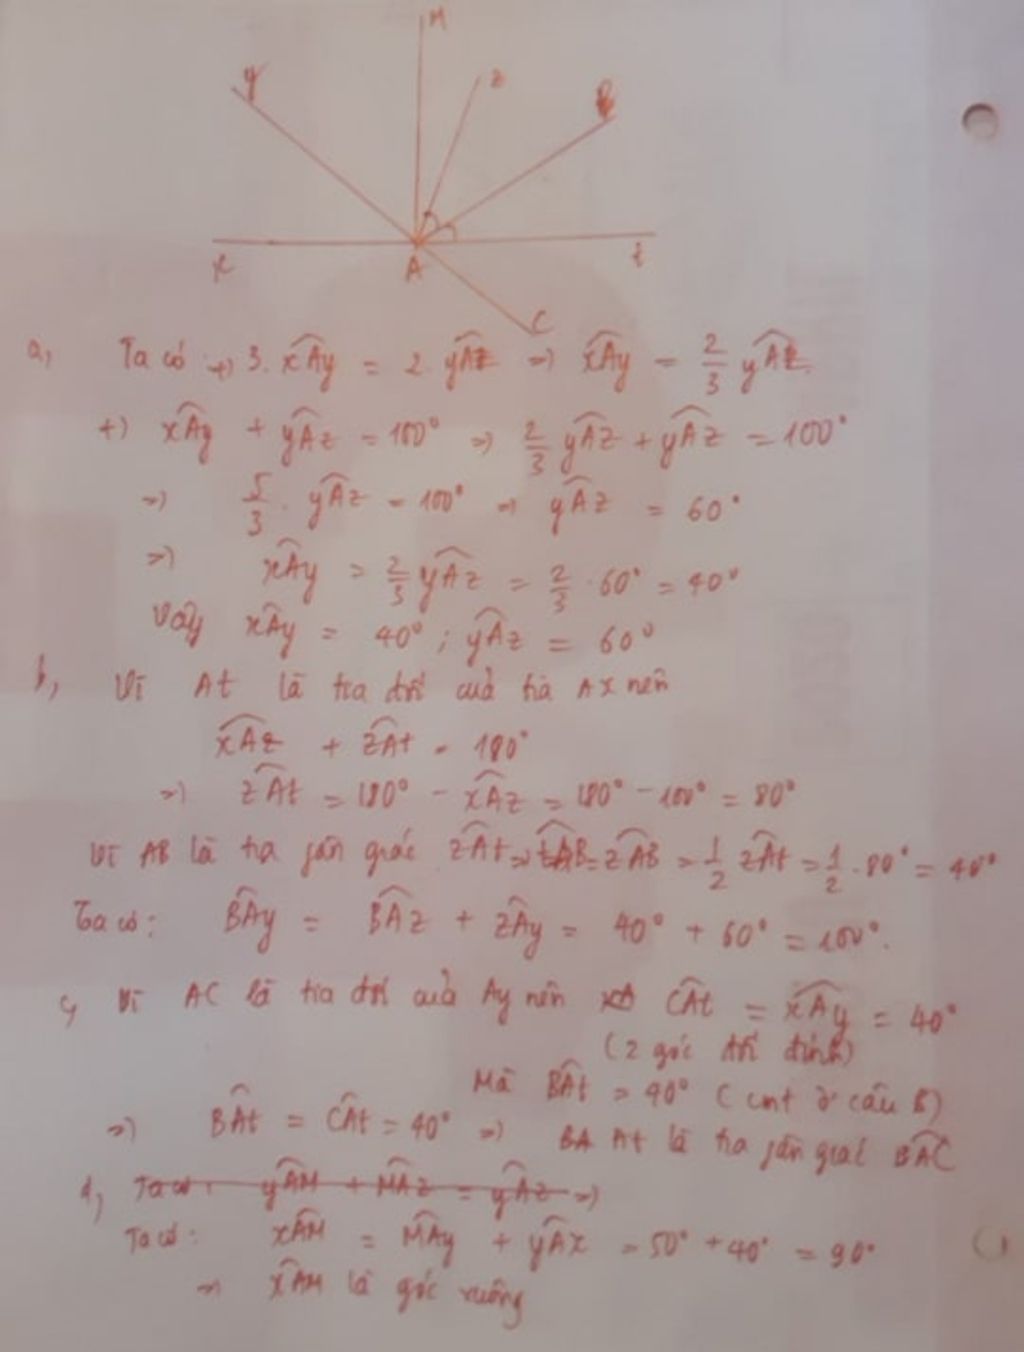 M
y
z
B
x
A
t
C
a, Ta có +) 3. xÂy = 2. yÂz => xÂy = 2/3 yÂz.
+) xÂy + yÂz = 100° => 2/3 yÂz + yÂz = 100°
=> 5/3 . yÂz = 100° => yÂz = 60°
=> xÂy = 2/3 yÂz = 2/3 . 60° = 40°
Vậy xÂy = 40° ; yÂz = 60°
b, Vì At là tia đối của tia Ax nên
xÂz + zÂt = 180°
=> zÂt = 180° - xÂz = 180° - 100° = 80°
Vì AB là tia phân giác zÂt => tÂB = zÂB = 1/2 zÂt = 1/2 . 80° = 40°
Ta có: BÂy = BÂz + zÂy = 40° + 60° = 100°.
c, Vì AC là tia đối của Ay nên CÂt = xÂy = 40°
(2 góc đối đỉnh)
Mà BÂt = 40° (cmt ở câu b)
=> BÂt = CÂt = 40° => At là tia phân giác BÂC
d, Ta có: yÂM + MÂz = yÂz =>
Ta có: xÂM = MÂy + yÂx = 50° + 40° = 90°
=> xÂM là góc vuông